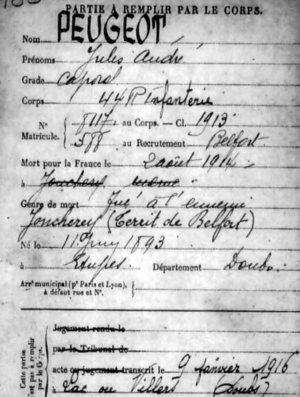 PARTIE À REMPLIR PAR LE CORPS.
Nom PEUGEOT
Prénoms Jules André
Grade caporal
Corps 44 R Infanterie
N° 8117. au Corps. — Cl. 1913
Matricule. 388 au Recrutement Belfort
Mort pour la France le 2 août 1914
à Joncherey
Genre de mort Tué à l'ennemi
Joncherey (Territ de Belfort)
Né le 11 Juin 1893
à Etupes Département Doubs
Arrt municipal (pr Paris et Lyon),
à défaut rue et N°.
Jugement rendu le
par le Tribunal de
acte ou jugement transcrit le 9 janvier 1916
à Lac ou Villers (Doubs)
Cette partie
n'est pas à remplir
par le Corps.